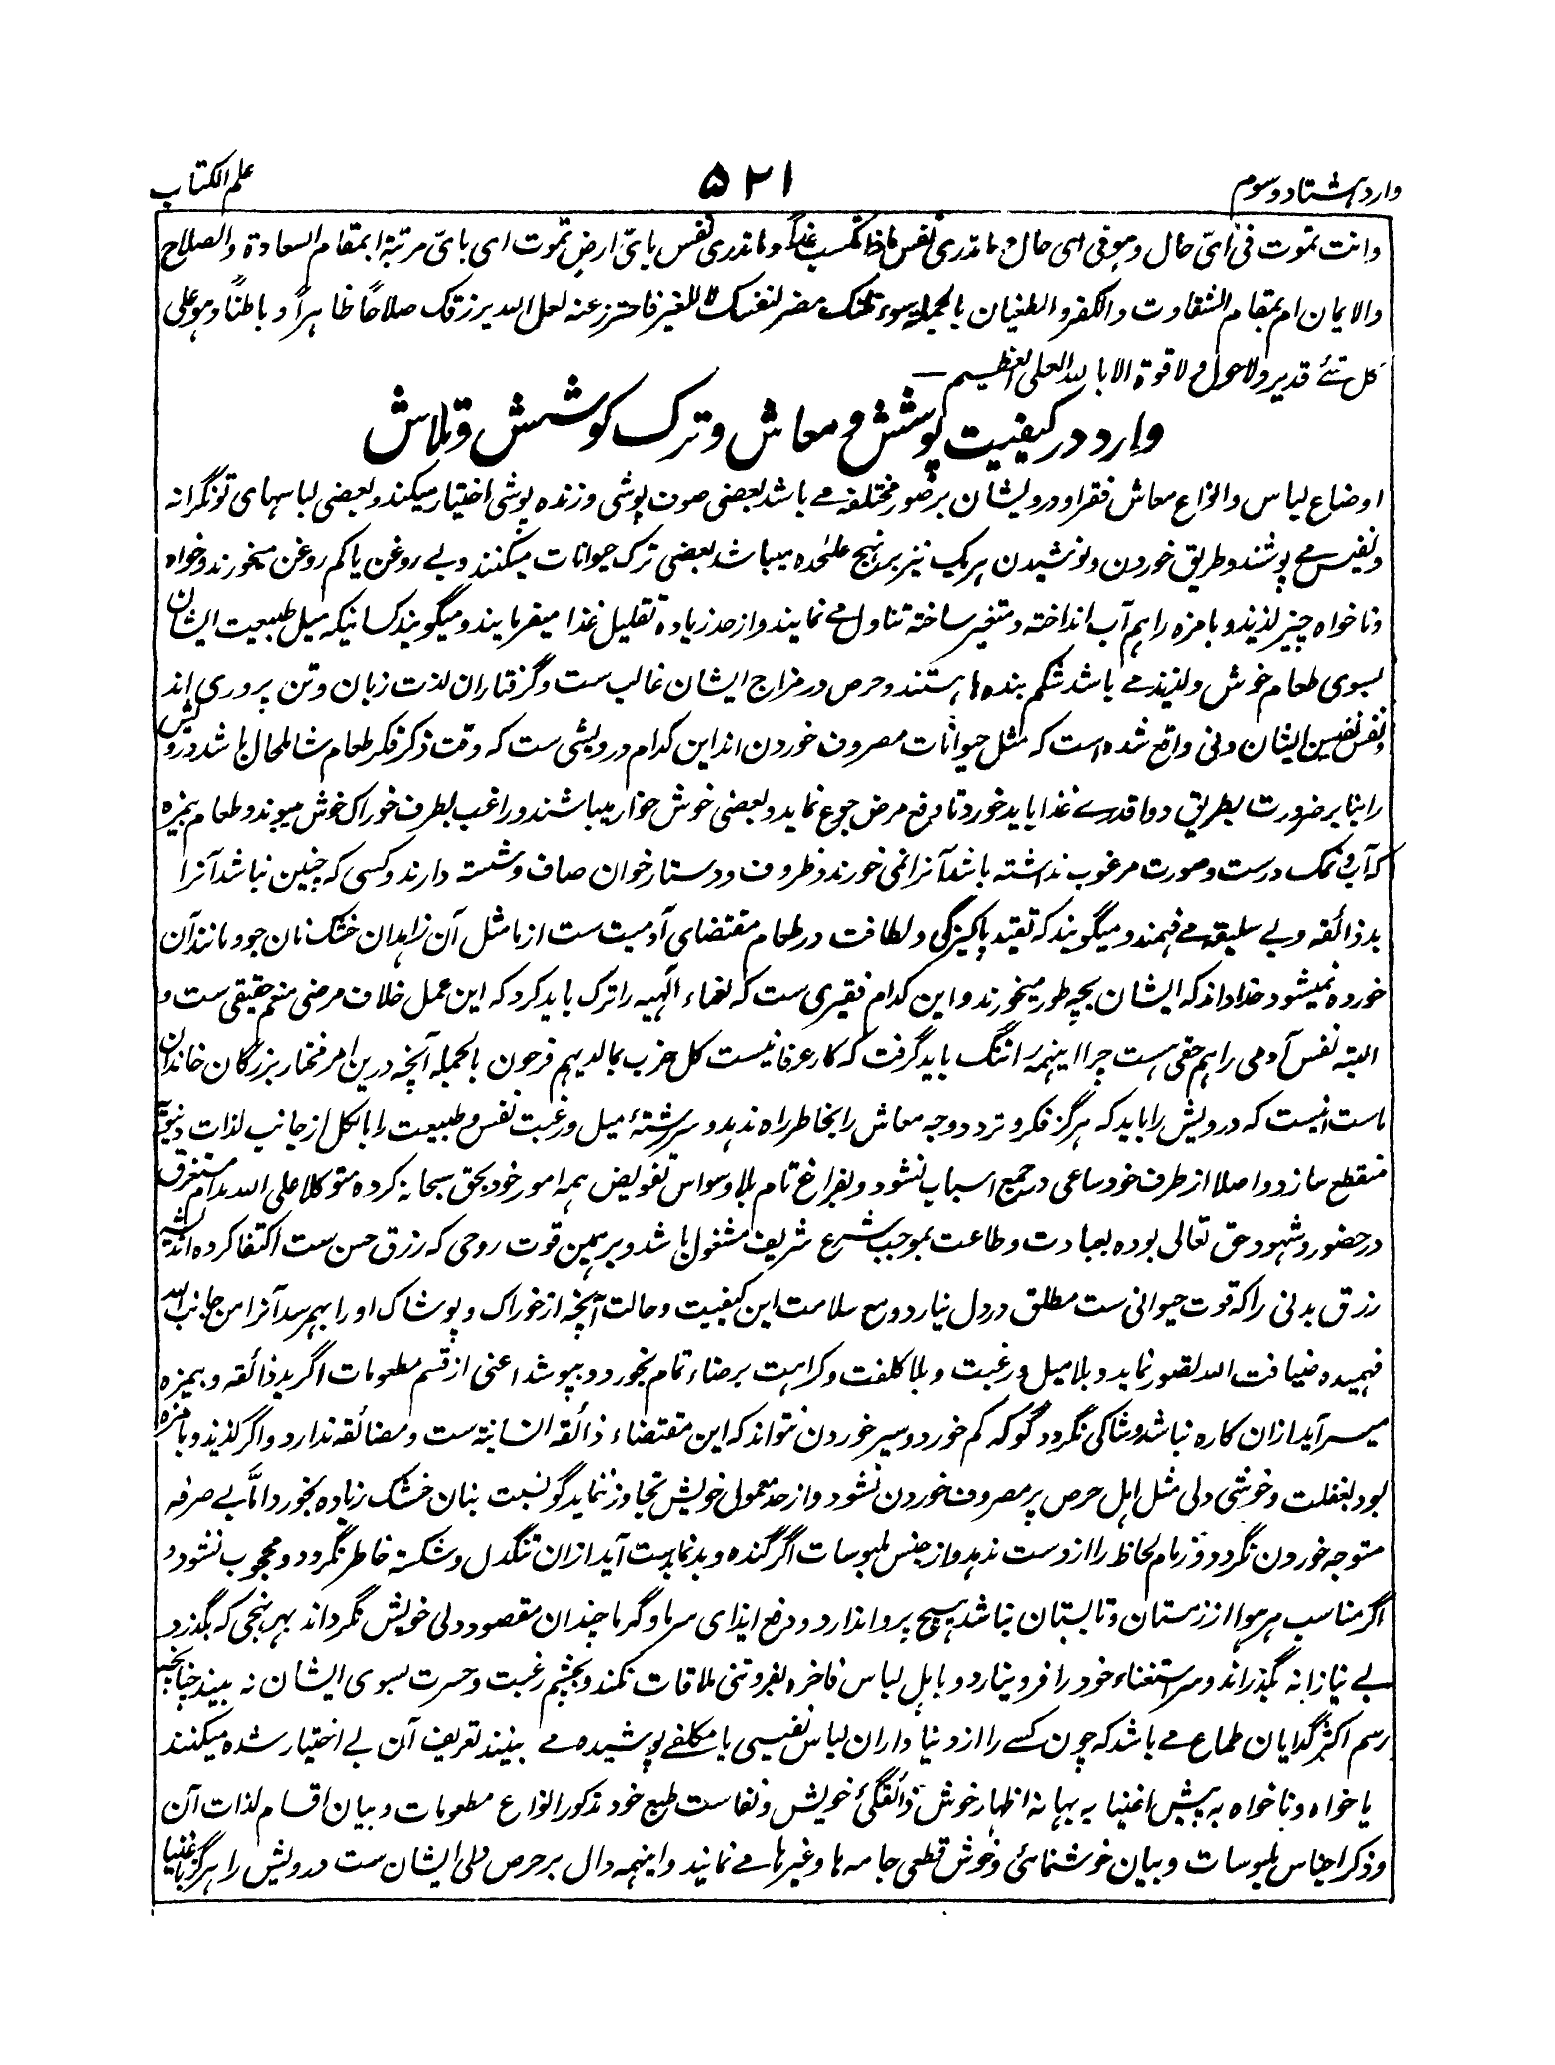 وارد ہشتاد و سوم
۵۲۱
علم الکتاب
وانت تموت فی ایّ حال و ہو فی ای حال و ما تدری نفس ماذا تکسب غدا و ما تدری نفس بایّ ارض تموت ای بایّ مرتبۃ ابمقام السعادۃ والصلاح
والایمان ام بمقام الشقاوت والکفر والطغیان بالجملہ سوء ظنک مضر لنفسک لا للغیر فاحترز عنہ لعل اللہ یرزقک صلاحاً ظاہراً و باطناً و ہو علی
کل شئے قدیر ولا حول و لا قوۃ الا باللہ العلی العظیم —
وارد در کیفیت پوشش و معاش و ترک کوشش و تلاش
اوضاع لباس و انواع معاش فقرا و درویشان بر صور مختلفہ مے باشد بعضی صوف پوشی و زندہ پوشی اختیار میکند و بعضی لباسہای تونگرانہ
و نفیس مے پوشند و طریق خوردن و نوشیدن ہر یک نیز بر نہج علٰحدہ میباشد بعضی ترک حیوانات میکنند و بے روغن یا کم روغن میخورند و خواہ
و ناخواہ چیز لذیذ و بامزہ را ہم آب انداختہ و متغیر ساختہ تناول مے نمایند و از حد زیادہ تقلیل غذا میفرمایند و میگویند کسانیکہ میل طبیعت ایشان
بسوی طعام خوش و لذیذ مے باشد شکم بندہ ہا ہستند و حرص در مزاج ایشان غالب ست و گرفتاران لذت زبان و تن پروری اند
و نفس نفیس ایشان دنی واقع شدہ است کہ مثل حیوانات مصروف خوردن اند این کدام درویشی ست کہ وقت ذکر فکر طعام شاملحال باشد درویش
را بنا بر ضرورت بطریق دوا قدرے غذا باید خورد تا رفع مرض جوع نماید و بعضی خوش خوار میباشند و راغب بطرف خوراک خوش میبوند و طعام بیمزہ
کہ آب و نمک درست و صورت مرغوب نداشتہ باشد آنرا نمی خورند و ظروف و دستارخوان صاف و شستہ دارند و کسی کہ چنین نباشد آنرا
بدذائقہ و بے سلیقہ مے فہمند و میگویند کہ تقید پاکیزگی و لطافت در طعام مقتضای آدمیت ست از ما مثل آن زاہدان خشک نان جو و مانند آن
خوردہ نمیشود خدا داند کہ ایشان بچہ طور میخورند و این کدام فقیری ست کہ نعماء الٰہیہ را ترک باید کرد کہ این عمل خلاف مرضی منعم حقیقی ست و
البتہ نفس آدمی را ہم حقی ہست چرا اینہمہ را تنگ باید گرفت کہ کار عرفا نیست کل حزب بما لدیہم فرحون بالجملہ آنچہ درین امر مختار بزرگان خاندان
ماست انیست کہ درویش را باید کہ ہرگز فکر و تردد وجہ معاش را بخاطر راہ ندہد و سررشتۂ میل و رغبت نفس و طبیعت را بالکل از جانب لذات دنیویہ
منقطع سازد و اصلا از طرف خود ساعی در جمع اسباب نشود و بفراغ تام بلا وسواس تفویض ہمہ امور خود بحق سبحانہ کردہ متوکلا علی اللہ مدام مستغرق
در حضور و شہود حق تعالی بودہ بعبادت و طاعت بموجب شرع شریف مشغول باشد و بر ہمین قوت روحی کہ رزق حسن ست اکتفا کردہ اندیشہ
رزق بدنی را کہ قوت حیوانی ست مطلق در دل نیارد و مع سلامت این کیفیت و حالت آنچہ از خوراک و پوشاک او را بہم رسد آنرا من جانب اللہ
فہمیدہ ضیافت اللہ تصور نماید و بلا میل و رغبت و بلا کلفت و کراہت برضاء تمام بخورد و بپوشد اعنی از قسم مطعومات اگر بدذائقہ و بیمزہ
میسر آید ازان کارہ نباشد و شاکی نگردد گو کہ کم خورد و سیر خوردن نتواند کہ این مقتضاء ذائقہ انسانیۃ ست و مضائقہ ندارد و اگر لذیذ و بامزہ
بود بغفلت و خوشی دلی مثل اہل حرص پر مصروف خوردن نشود و از حد معمول خویش تجاوز ننماید گو نسبت بنان خشک زیادہ بخورد امّا بے صرفہ
متوجہ خوردن نگردد و زمام لحاظ را از دست ندہد و از جنس ملبوسات اگر گندہ و بدنما بدست آید ازان تنگدل و شکستہ خاطر نگردد و محجوب نشود و
اگر مناسب ہر ہوا از زمستان و تابستان نباشد ہیچ پروا ندارد و دفع ایذای سرما و گرما چندان مقصود دلی خویش نگرداند بہر نہجی کہ بگذرد
بے نیازانہ بگذراند و سر استغناء خود را فرو نیارد و با اہل لباس فاخرہ بفروتنی ملاقات نکند و بچشم رغبت و حسرت بسوی ایشان نہ بیند چنانچہ
رسم اکثر گدایان طماع مے باشد کہ چون کسے را از دنیا داران لباس نفیسی یا مکلفے پوشیدہ مے بینند تعریف آن بے اختیار شدہ میکنند
یا خواہ و ناخواہ بہ پیش اغنیا بہ بہانہ اظہار خوش ذائقگیٔ خویش و نفاست طبع خود مذکور انواع مطعومات و بیان اقسام لذات آن
و ذکر اجناس ملبوسات و بیان خوشنمائی و خوش قطعی جامہ ہا وغیرہا مے نمایند و اینہمہ دال بر حرص دلی ایشان ست درویش را ہرگز با اغنیا